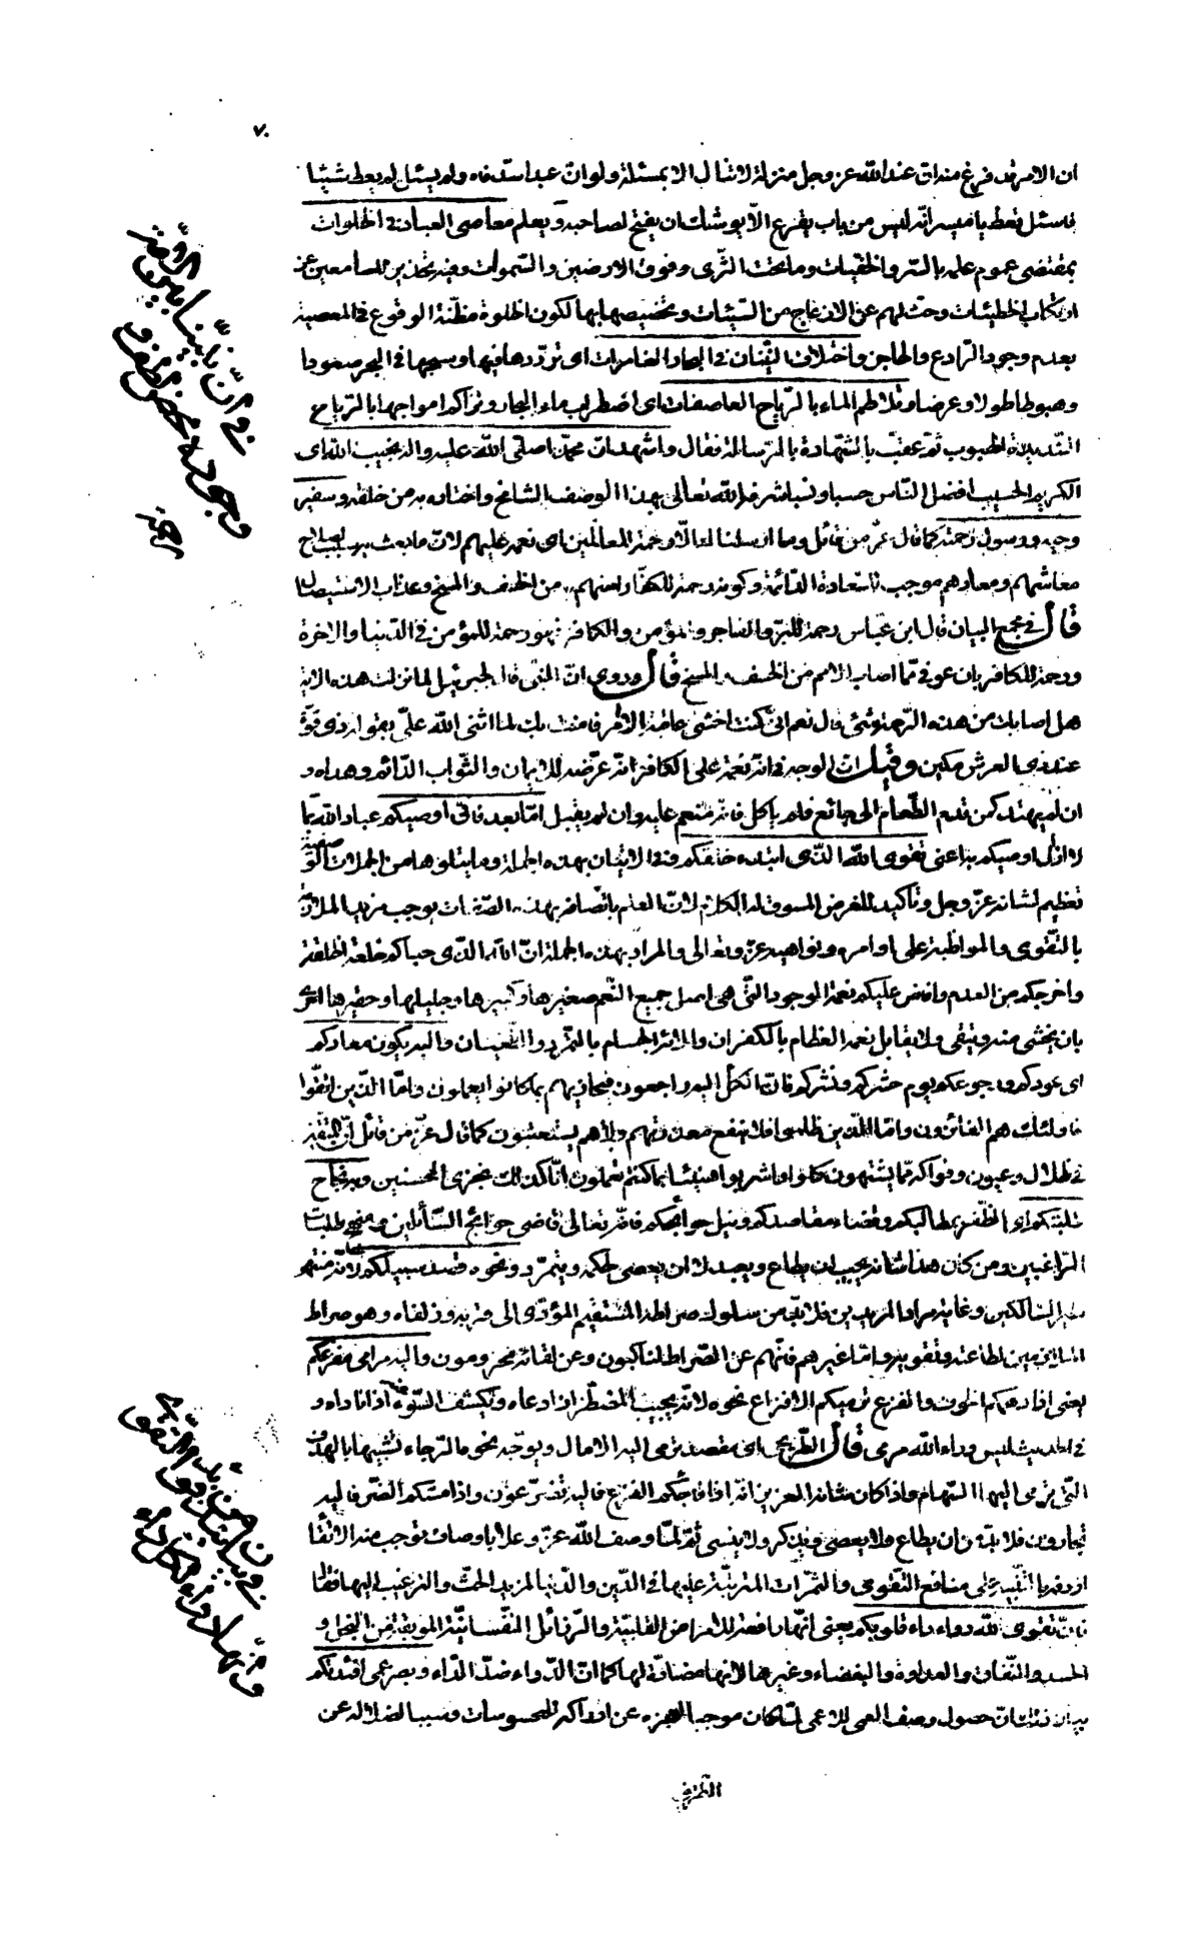 ٧٠
ان الامر قد فرغ منه ان عند الله عز وجل منزلة لا تنال الا بمسئلة ولو ان عبدا سد فاه ولم يسئل لم يعط شيئا
فاسئل تعط يا ميسر انه ليس من باب يقرع الا يوشك ان يفتح لصاحبه ويعلم معاصى العباد فى الخلوات
بمقتضى عموم علمه بالسر والخفيات وما تحت الثرى وفوق الارضين والسموات وفيه تحذير للسامعين عن
ارتكاب الخطيئات وحث لهم عن الانزعاج من السيئات وتخصيصها بها لكون الخلوة مظنة الوقوع فى المعصية
بعدم وجود الرادع والحاجز واختلاف النينان فى البحار الغامرات اى ترددها فيها وسبحها فى البحر صعودا
وهبوطا طولا وعرضا وتلاطم الماء بالرياح العاصفات اى اضطراب ماء البحار وتراكم امواجها بالرياح
الشديدة الهبوب ثم عقب بالشهادة بالرسالة فقال واشهد ان محمدا صلى الله عليه واله نجيب الله اى
الكريم الحسيب افضل الناس حسبا ونسبا شرفه الله تعالى بهذا الوصف الشامخ واختاره به من خلقه وسفير
وحيه ورسول رحمته كما قال عز من قائل وما ارسلناك الا رحمة للعالمين اى نعمة عليهم لان ما بعث به سبب لصلاح
معاشهم ومعادهم موجب للسعادة الدائمة وكونه رحمة للكفار امنهم به من الخسف والمسخ وعذاب الاستيصال
قال فى مجمع البيان قال ابن عباس رحمة للبر والفاجر والمؤمن والكافر فهو رحمة للمؤمن فى الدنيا والاخرة
ورحمة للكافر بان عوفى مما اصاب الامم من الخسف والمسخ قال وروى ان النبى قال لجبرئيل لما نزلت هذه الاية
هل اصابك من هذه الرحمة شئ قال نعم انى كنت اخشى عاقبة الامر فامنت بك لما اثنى الله على بقوله ذى قوة
عند ذى العرش مكين وقيل ان الوجه فى انه نعمة على الكافر انه عرضه للايمان والثواب الدائم وهداه و
ان لم يهتد كمن قدم الطعام الى جائع فلم ياكل فانه منعم عليه وان لم يقبل اما بعد فانى اوصيكم عباد الله بما
لا ازال اوصيكم به اعنى تقوى الله الذى ابتدء خلقكم وفى الاتيان بهذه الجملة وما يتلوها من الجملات الوصفية
تعظيم لشانه عز وجل وتاكيد للغرض المسوق له الكلام لان العلم باتصافه بهذه الصفات يوجب مزيد الملازمة
بالتقوى والمواظبة على اوامره ونواهيه عز وتعالى والمراد بهذه الجملة ان الله الذى حباكم خلعة الخلقة
واخرجكم من العدم وافاض عليكم نعمة الوجود التى هى اصل جميع النعم صغيرها وكبيرها وجليلها وحقيرها احرى
بان يخشى منه ويتقى ولا يقابل نعمه العظام بالكفران والائه الجسام بالتمرد والعصيان واليه يكون معادكم
اى عودكم ورجوعكم يوم حشركم ونشركم فان الكل اليه راجعون فيجازيهم بما كانوا يعملون واما الذين اتقوا
فاولئك هم الفائزون واما الذين ظلموا فلا ينفع معذرتهم ولا هم يستعتبون كما قال عز من قائل ان المتقين
فى ظلال وعيون وفواكه مما يشتهون كلوا واشربوا هنيئا بما كنتم تعملون انا كذلك نجزى المحسنين وبه نجاح
طلبتكم اى الظفر بمطالبكم وقضاء مقاصدكم ونيل حوائجكم فانه تعالى قاضى حوائج السائلين ومنجح طلبات
الراغبين ومن كان هذا شانه يجب ان يطاع ويعبد لا ان يعصى لحكمه ويتمرد ونحوه قصد سبيلكم لانه منتهى
سير السالكين وغاية مراد المريدين فلا بد من سلوك صراطه المستقيم المؤدى الى قربه وزلفاه وهو صراط
الملازمين لطاعته وتقويه واما غيرهم فانهم عن الصراط لناكبون وعن لقائه محرومون واليه مرامى مفزعكم
يعنى اذا دهمكم الخوف والفزع ترميكم الافزاع نحوه لانه يجيب المضطر اذا دعاه ويكشف السوء عنه اذا ناداه و
فى الحديث ليس وراء الله مرمى قال الطريحى اى مقصد ترمى اليه الامال ويوجه نحوه الرجاء تشبيها بالهدف
التى ترمى اليها السهام واذا كان شانه العزيز انه اذا فاجأكم الفزع فاليه تضرعون واذا مسكم الضر فاليه
تجأرون فلا بد من ان يطاع ولا يعصى ويذكر ولا ينسى ثم لما وصف الله عز وعلا باوصاف توجب منه الاتقاء
اردفه بالتنبيه على منافع التقوى والثمرات المترتبة عليها فى الدين والدنيا لمزيد الحث والترغيب اليها فقال
فان تقوى الله دواء داء قلوبكم يعنى انها رافعة للامراض القلبية والرذائل النفسانية الموبقة من البخل و
الحسد والنفاق والعداوة والبغضاء وغيرها لانها مضادة لها كما ان الدواء ضد الداء وبصر عمى افئدتكم
بيان ذلك ان حصول وصف العمى للاعمى لما كان موجبا لعجزه عن ادراك المحسوسات وسببا لضلاله عن
رحمة